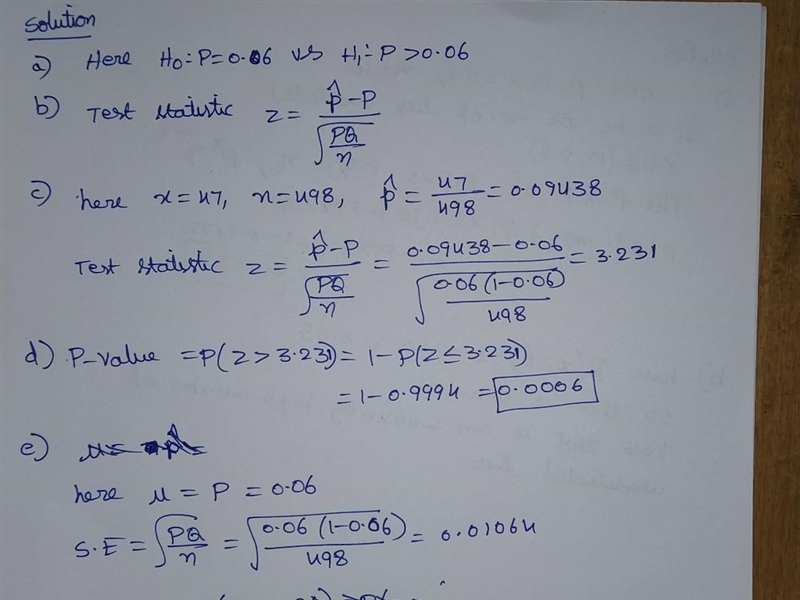 Solution
a) Here H0:- P=0.06 vs H1:- P>0.06
b) Test statistic z = (p̂-P)/√(PQ/n)
c) here x=47, n=498, p̂ = 47/498 = 0.09438
Test statistic z = (p̂-P)/√(PQ/n) = (0.09438-0.06)/√(0.06(1-0.06)/498) = 3.231
d) P-value = P(Z>3.231) = 1-P(Z≤3.231)
= 1-0.9994 = 0.0006
e)
here μ = P = 0.06
S.E = √(PQ/n) = √(0.06(1-0.06)/498) = 0.01064